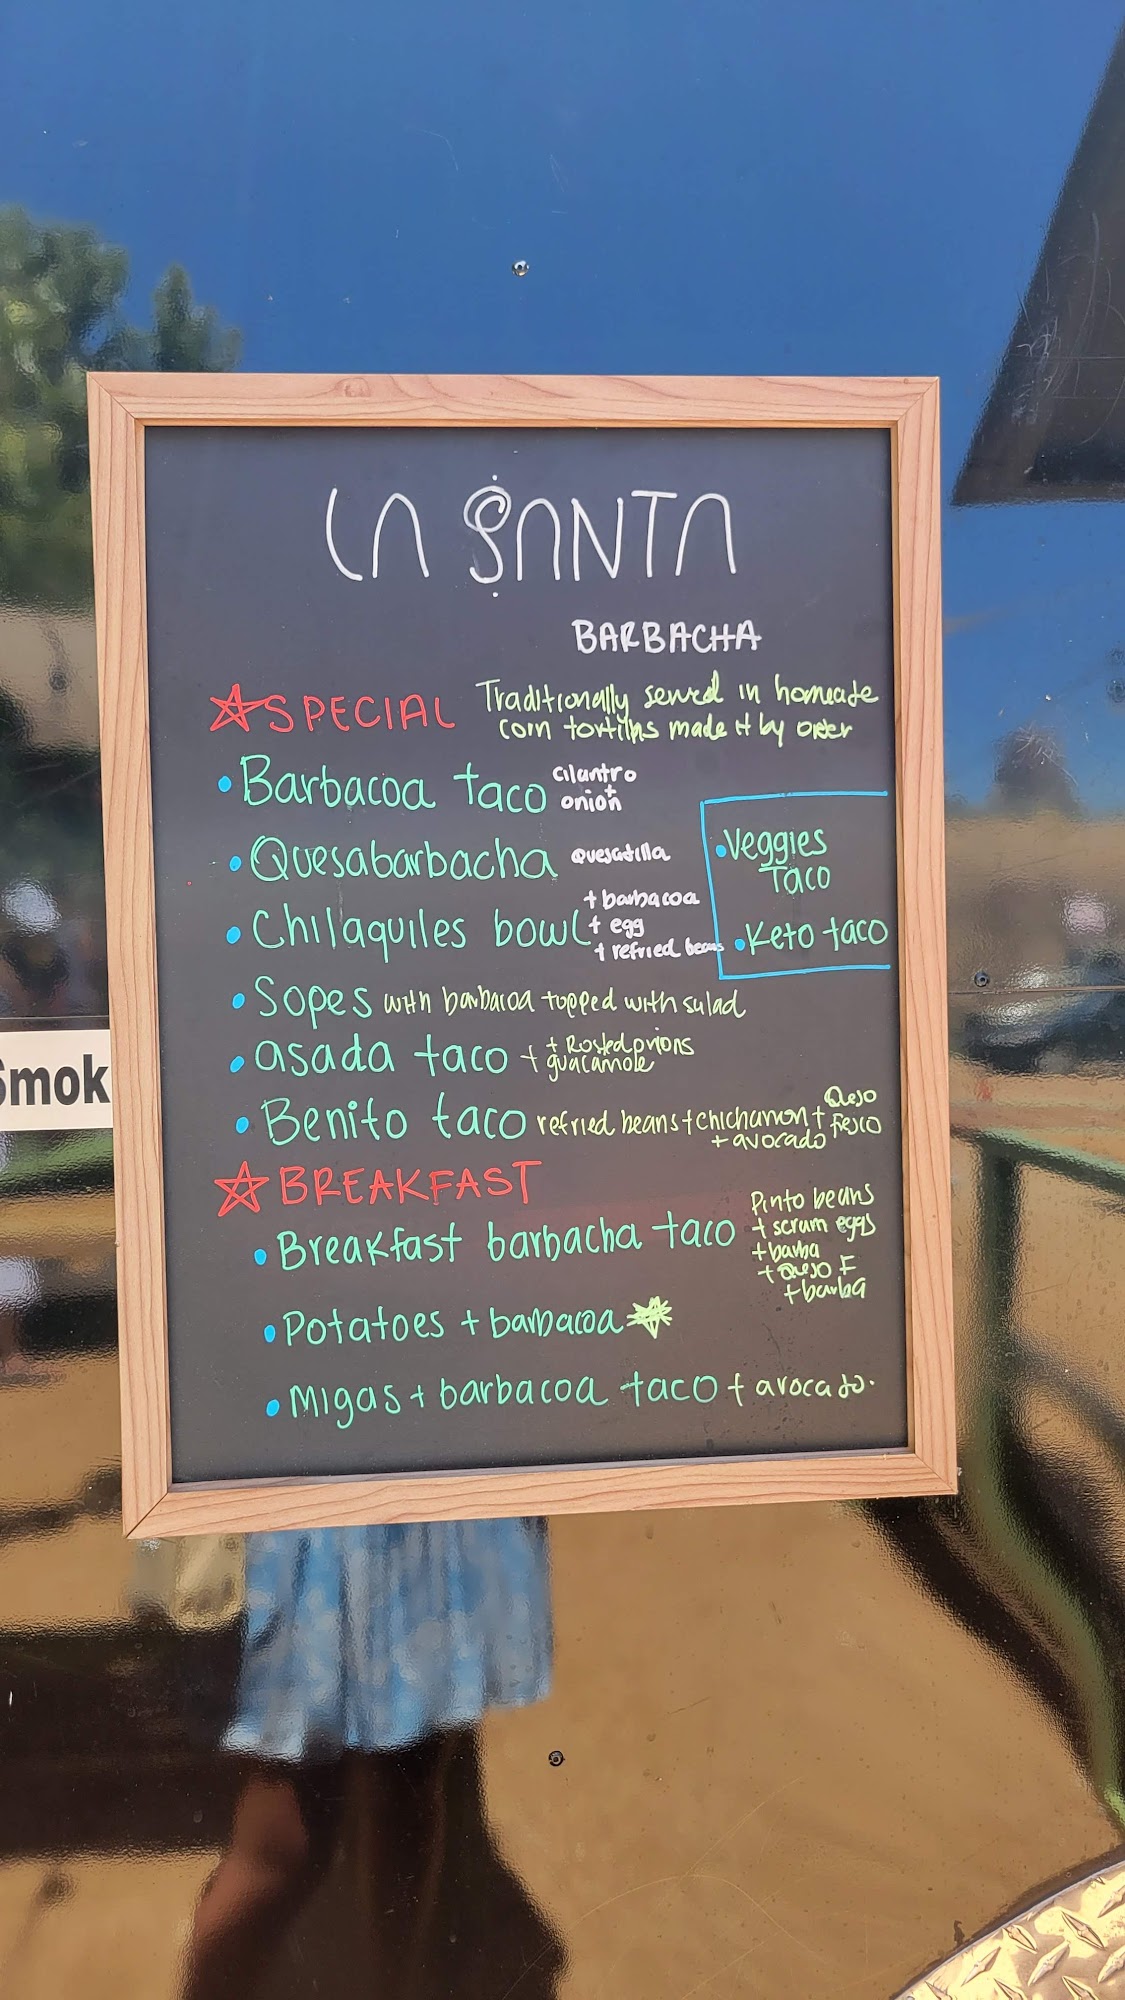 LA SANTA
BARBACHA
SPECIAL
Traditionally served in homeade
corn tortillas made it by order
Barbacoa taco
cilantro
+
onion
Quesabarbacha
Chilaquiles bowl
+ barbacoa
+ egg
+ refried beans
Veggies
Taco
Keto taco
Sopes with barbacoa topped with salad
asada taco +
+ Rosted onions
guacamole
Benito taco refried beans +
+ avocado
Queso
BREAKFAST
Breakfast barbacha taco
Pinto beans
+ scram eggs
+ barba
+ Queso F
+ barba
Potatoes + barbacoa
Migas + barbacoa taco + avocado.
Smok